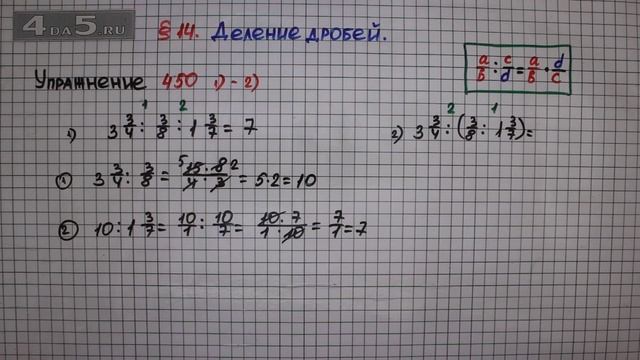 4DA5.RU
§ 14. Деление дробей.
a/b : c/d = a/b · d/c
Упражнение 450 1)-2)
1 2
1) 3 3/4 : 3/8 : 1 3/7 = 7
2 1
2) 3 3/4 : (3/8 : 1 3/7) =
① 3 3/4 : 3/8 = 15 · 8/4 · 3 = 5·2=10
5 2
② 10 : 1 3/7 = 10/1 : 10/7 = 10 · 7/1 · 10 = 7/1 = 7